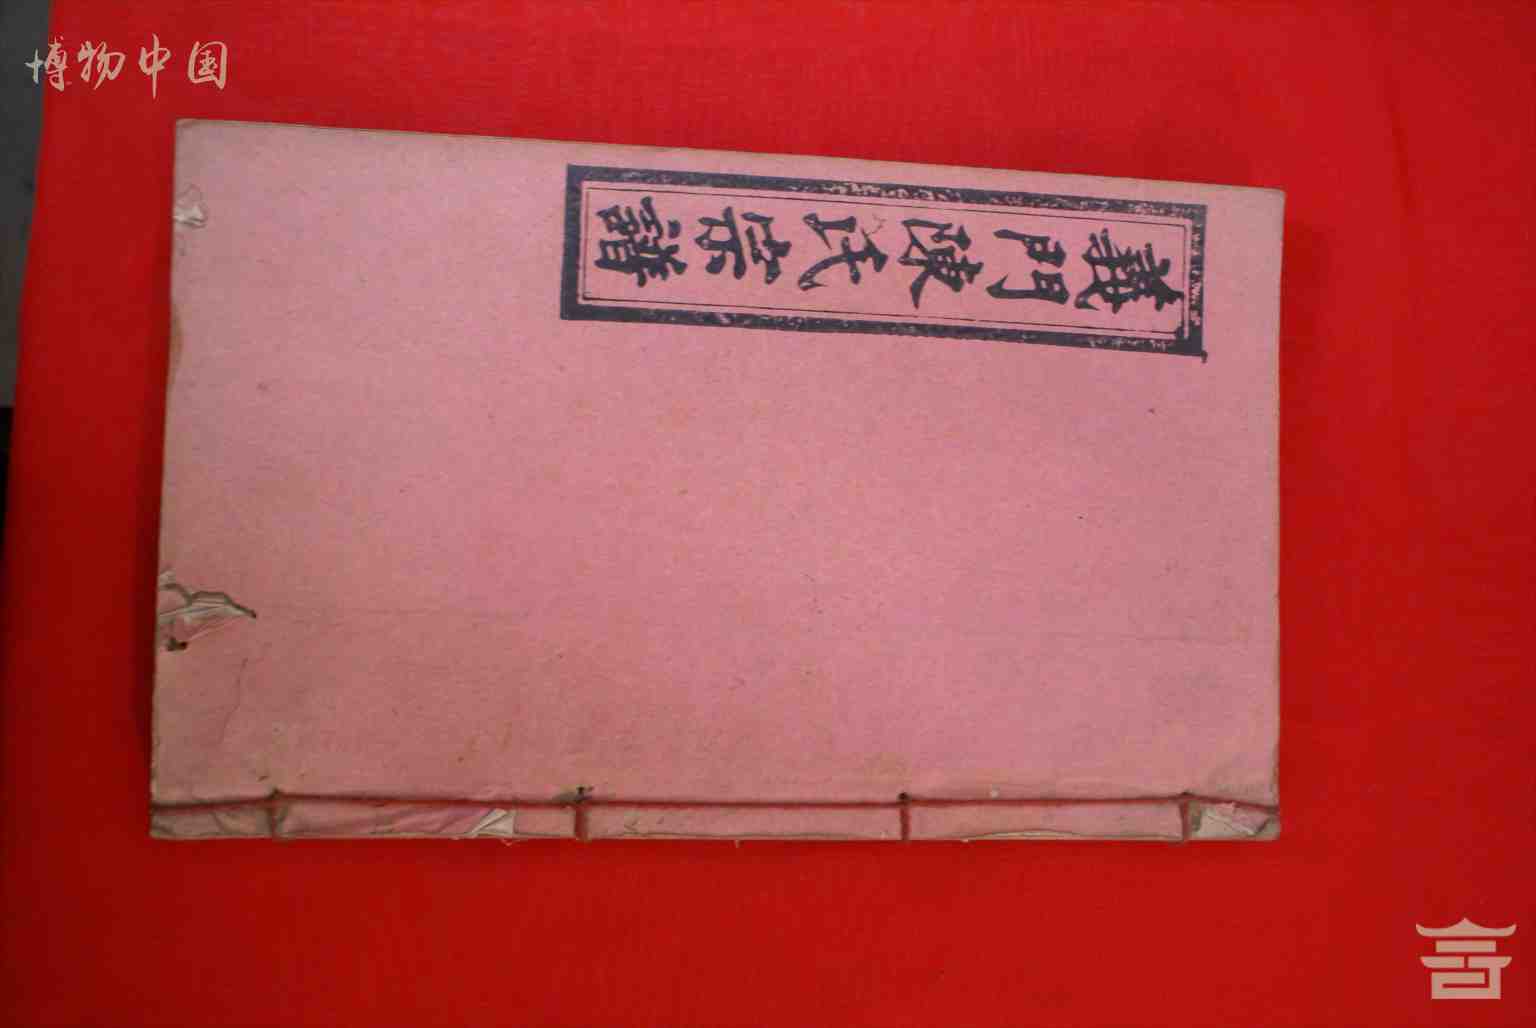 博物中国
義門陳氏宗譜